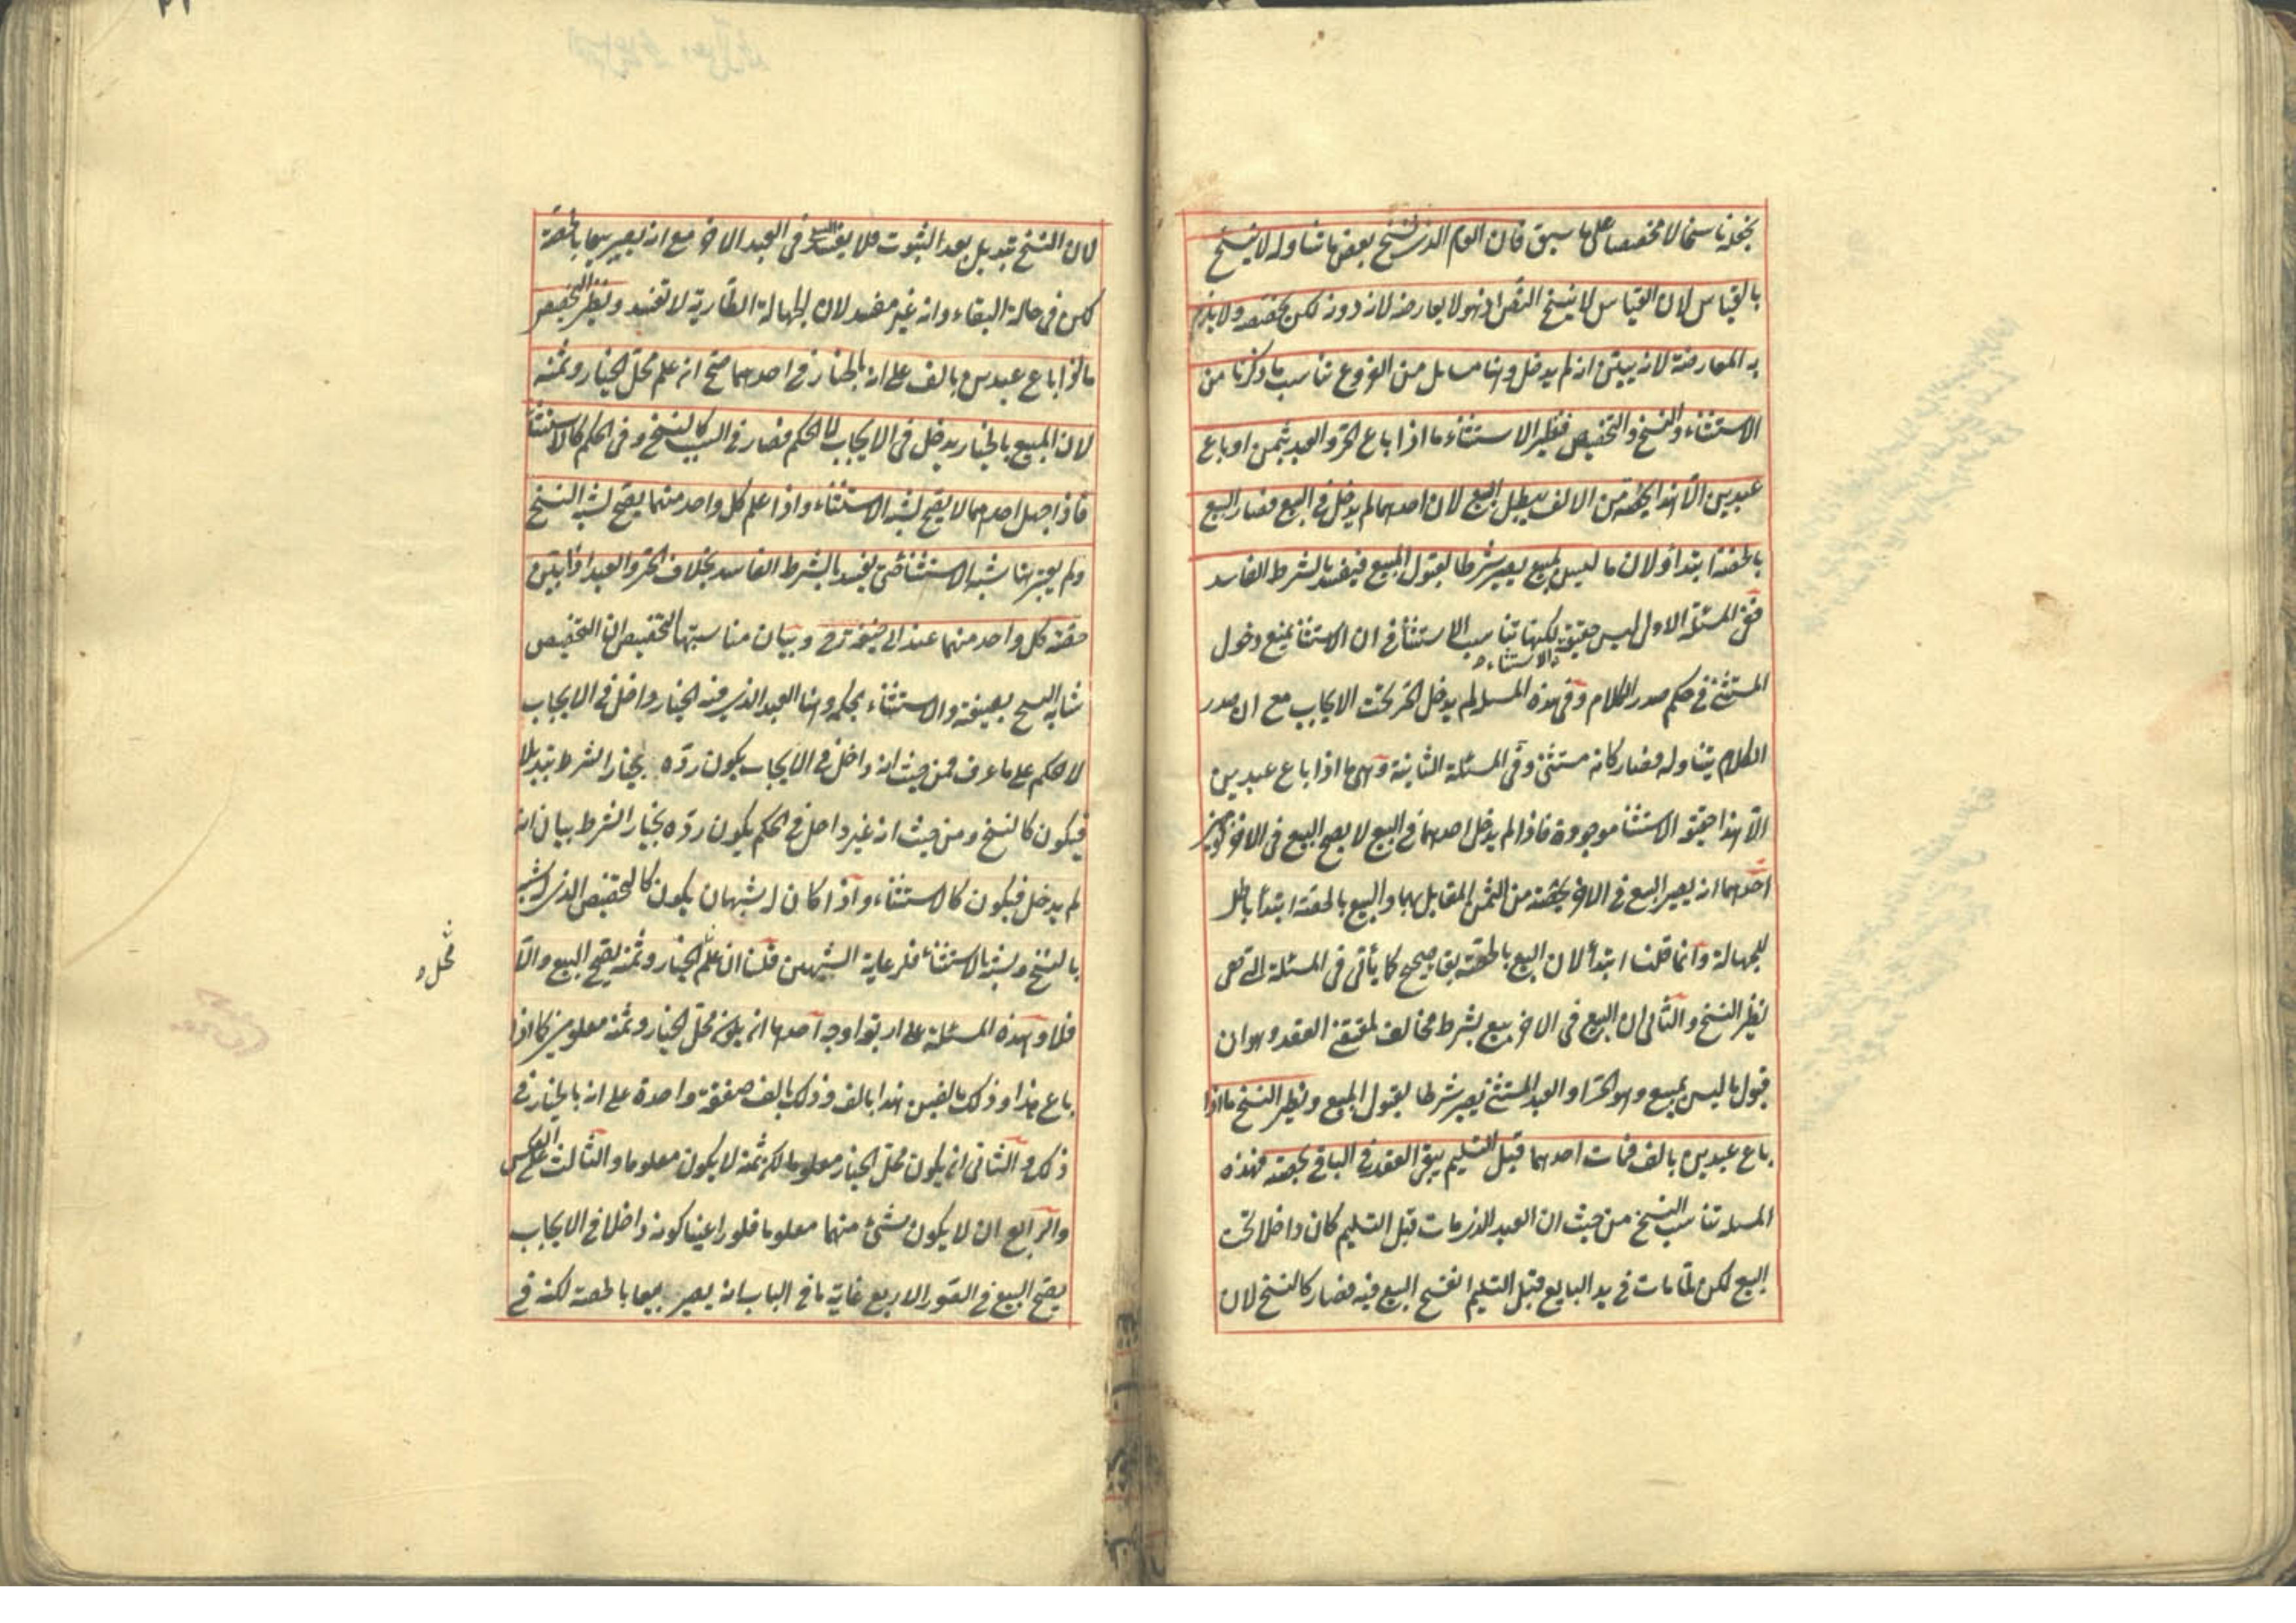 يجعله ناسخا لا مخصصا على ما سبق فان العام الذى نسخ بعض ما تناوله لا ينسخ
بالقياس لان القياس لا ينسخ النص اذ هو لا يعارضه لانه دونه لكن يخصصه ولا يلزم
به المعارضة لانه يبين انه لم يدخل وهنا مسايل من الفروع تناسب ما ذكرنا من
الاستثناء والنسخ والتخصيص فنظير الاستثناء ما اذا باع الحر والعبد بثمن او باع
عبدين الا هذا بحصته من الالف يبطل البيع لان احدهما لم يدخل فى البيع فصار البيع
بالحصة ابتداء ولان ما ليس بمبيع يصير شرطا لقبول المبيع فيفسد بالشرط الفاسد
ففى المسئلة الاولى ليس حقيقة الاستثناء لكنها تناسب الاستثناء فى ان الاستثناء يمنع دخول
المستثنى فى حكم صدر الكلام وفى هذه المسئله لم يدخل الحر تحت الايجاب مع ان صدر
الكلام يتناوله فصار كانه مستثنى وفى المسئلة الثانية وهى ما اذا باع عبدين
الا هذا حقيقة الاستثناء موجودة فاذا لم يدخل احدهما فى البيع لا يصح البيع فى الاخر لوجهين
احدهما انه يصير البيع فى الاخر بحصته من الثمن المقابل بهما والبيع بالحصة ابتداء باطل
للجهالة وانما قلنا ابتداء لان البيع بالحصة بقاء صحيح كما يأتى فى المسئلة التى هى
نظير النسخ والثانى ان البيع فى الاخر بيع بشرط مخالف لمقتضى العقد وهو ان
قبول ما ليس بمبيع وهو الحر او العبد المستثنى يصير شرطا لقبول المبيع ونظير النسخ ما اذا
باع عبدين بالف فمات احدهما قبل التسليم يبقى العقد فى الباقى بحصته فهذه
المسئله تناسب النسخ من حيث ان العبد الذى مات قبل التسليم كان داخلا تحت
البيع لكن لما مات فى يد البايع قبل التسليم انفسخ البيع فيه فصار كالنسخ لان
لان النسخ تبديل بعد الثبوت فلا يفسد البيع فى العبد الاخر مع انه يصير بيعا بالحصة
لكن فى حالة البقاء وانه غير مفسد لان الجهالة الطارية لا تفسد ونظير التخصيص
ما اذا باع عبدين بالف على انه بالخيار فى احدهما صح ان علم محل الخيار وثمنه
لان المبيع بالخيار يدخل فى الايجاب لا الحكم فصار فى السبب كالنسخ وفى الحكم كالاستثناء
فاذا جهل احدهما لا يصح لشبه الاستثناء واذا علم كل واحد منهما يصح لشبه النسخ
ولم يعتبر هنا شبه الاستثناء حتى يفسد بالشرط الفاسد بخلاف الحر والعبد اذا بين
حصة كل واحد منهما عند ابى حنيفة رح وبيان مناسبتها التخصيص ان التخصيص
شابه النسخ بصيغته والاستثناء بحكمه وهنا العبد الذى فيه الخيار داخل فى الايجاب
لا الحكم على ما عرف فمن حيث انه داخل فى الايجاب يكون رده بخيار الشرط تبديلا
فيكون كالنسخ ومن حيث انه غير داخل فى الحكم يكون رده بخيار الشرط بيان انه
لم يدخل فيكون كالاستثناء واذا كان له شبهان يكون كالتخصيص الذى له شبه
بالنسخ وشبه بالاستثناء فلرعاية الشبهين قلنا ان علم الخيار وثمنه يصح البيع والا
محل
فلا وهذه المسئلة على اربعة اوجه احدها ان يكون محل الخيار وثمنه معلومين كما اذا
باع هذا وذلك بالفين هذا بالف وذلك بالف صفقة واحدة على انه بالخيار فى
ذلك والثانى ان يكون محل الخيار معلوما لكن ثمنه لا يكون معلوما والثالث على العكس
والرابع ان لا يكون شئ منهما معلوما فلو راعينا كونه داخلا فى الايجاب
يصح البيع فى الصور الاربع غاية ما فى الباب انه يصير بيعا بالحصة لكنه فى